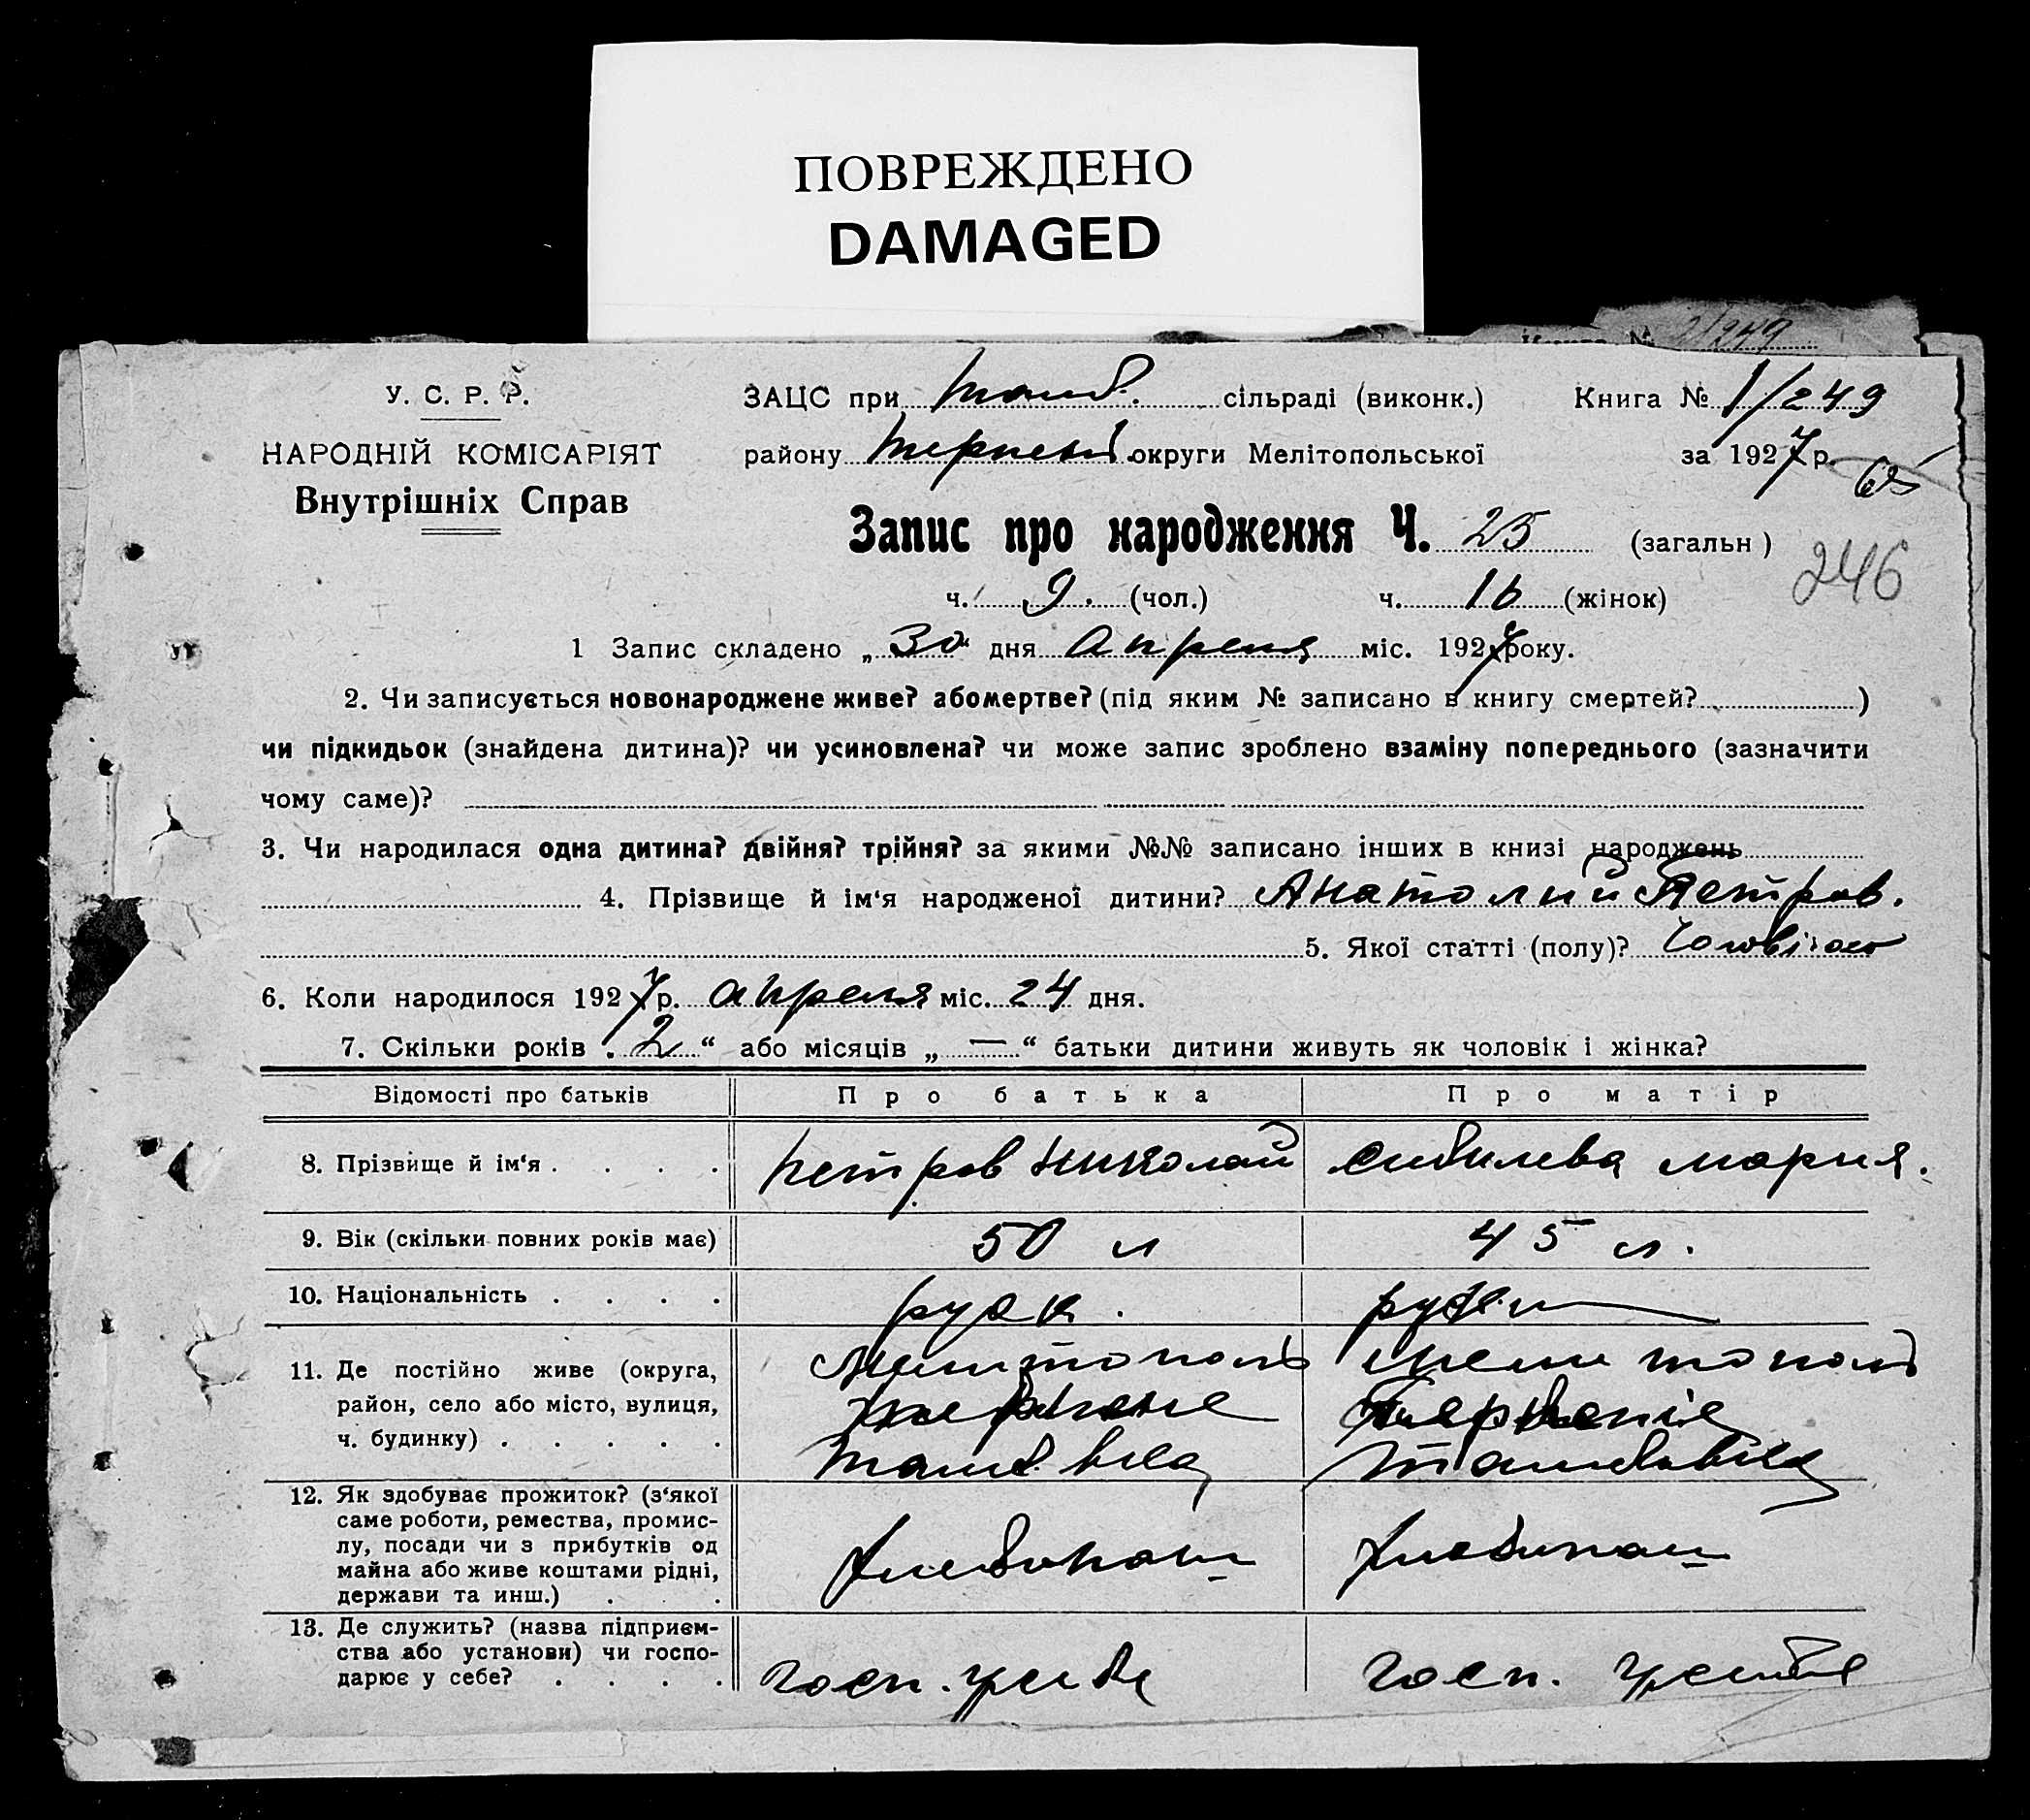 ПОВРЕЖДЕНО
DAMAGED
2/249
У. С. Р. Р.
ЗАЦС при Тамб. сільраді (виконк.) Книга № 1/249
НАРОДНІЙ КОМІСАРІЯТ
району Терпен округи Мелітопольської за 1927 р.
Внутрішніх Справ
65
Запис про народження Ч. 25 (загальн)
246
ч. 9. (чол.) ч. 16 (жінок)
1 Запис складено „30“ дня Апреля міс. 1927 року.
2. Чи записується новонароджене живе? абомертве? (під яким № записано в книгу смертей? )
чи підкидьок (знайдена дитина)? чи усиновлена? чи може запис зроблено взаміну попереднього (зазначити
чому саме)?
3. Чи народилася одна дитина? двійня? трійня? за якими №№ записано інших в книзі народжень
4. Прізвище й ім‘я народженої дитини? Анатолий Петров.
5. Якої статті (полу)?
6. Коли народилося 1927 р. апреля міс. 24 дня.
7. Скільки років „ 2 “ або місяців „ — “ батьки дитини живуть як чоловік і жінка?
Відомості про батьків Про батька Про матір
8. Прізвище й ім‘я . . . . Петров Николай Сивилева Мария.
9. Вік (скільки повних років має) 50 л 45 л.
10. Національність . . . . руск.
11. Де постійно живе (округа,
район, село або місто, вулиця,
ч. будинку) . . . . .
Мелитополь Мелитополь
Терпение Терпеніе
Тамб.
12. Як здобуває прожиток? (з‘якої
саме роботи, ремества, промис-
лу, посади чи з прибутків од
майна або живе коштами рідні,
держави та инш.) . . .
Хлебопаш Хлебопаш
13. Де служить? (назва підприєм-
ства або установи) чи госпо-
дарює у себе? . . . .
госп. у себе госп. у себе